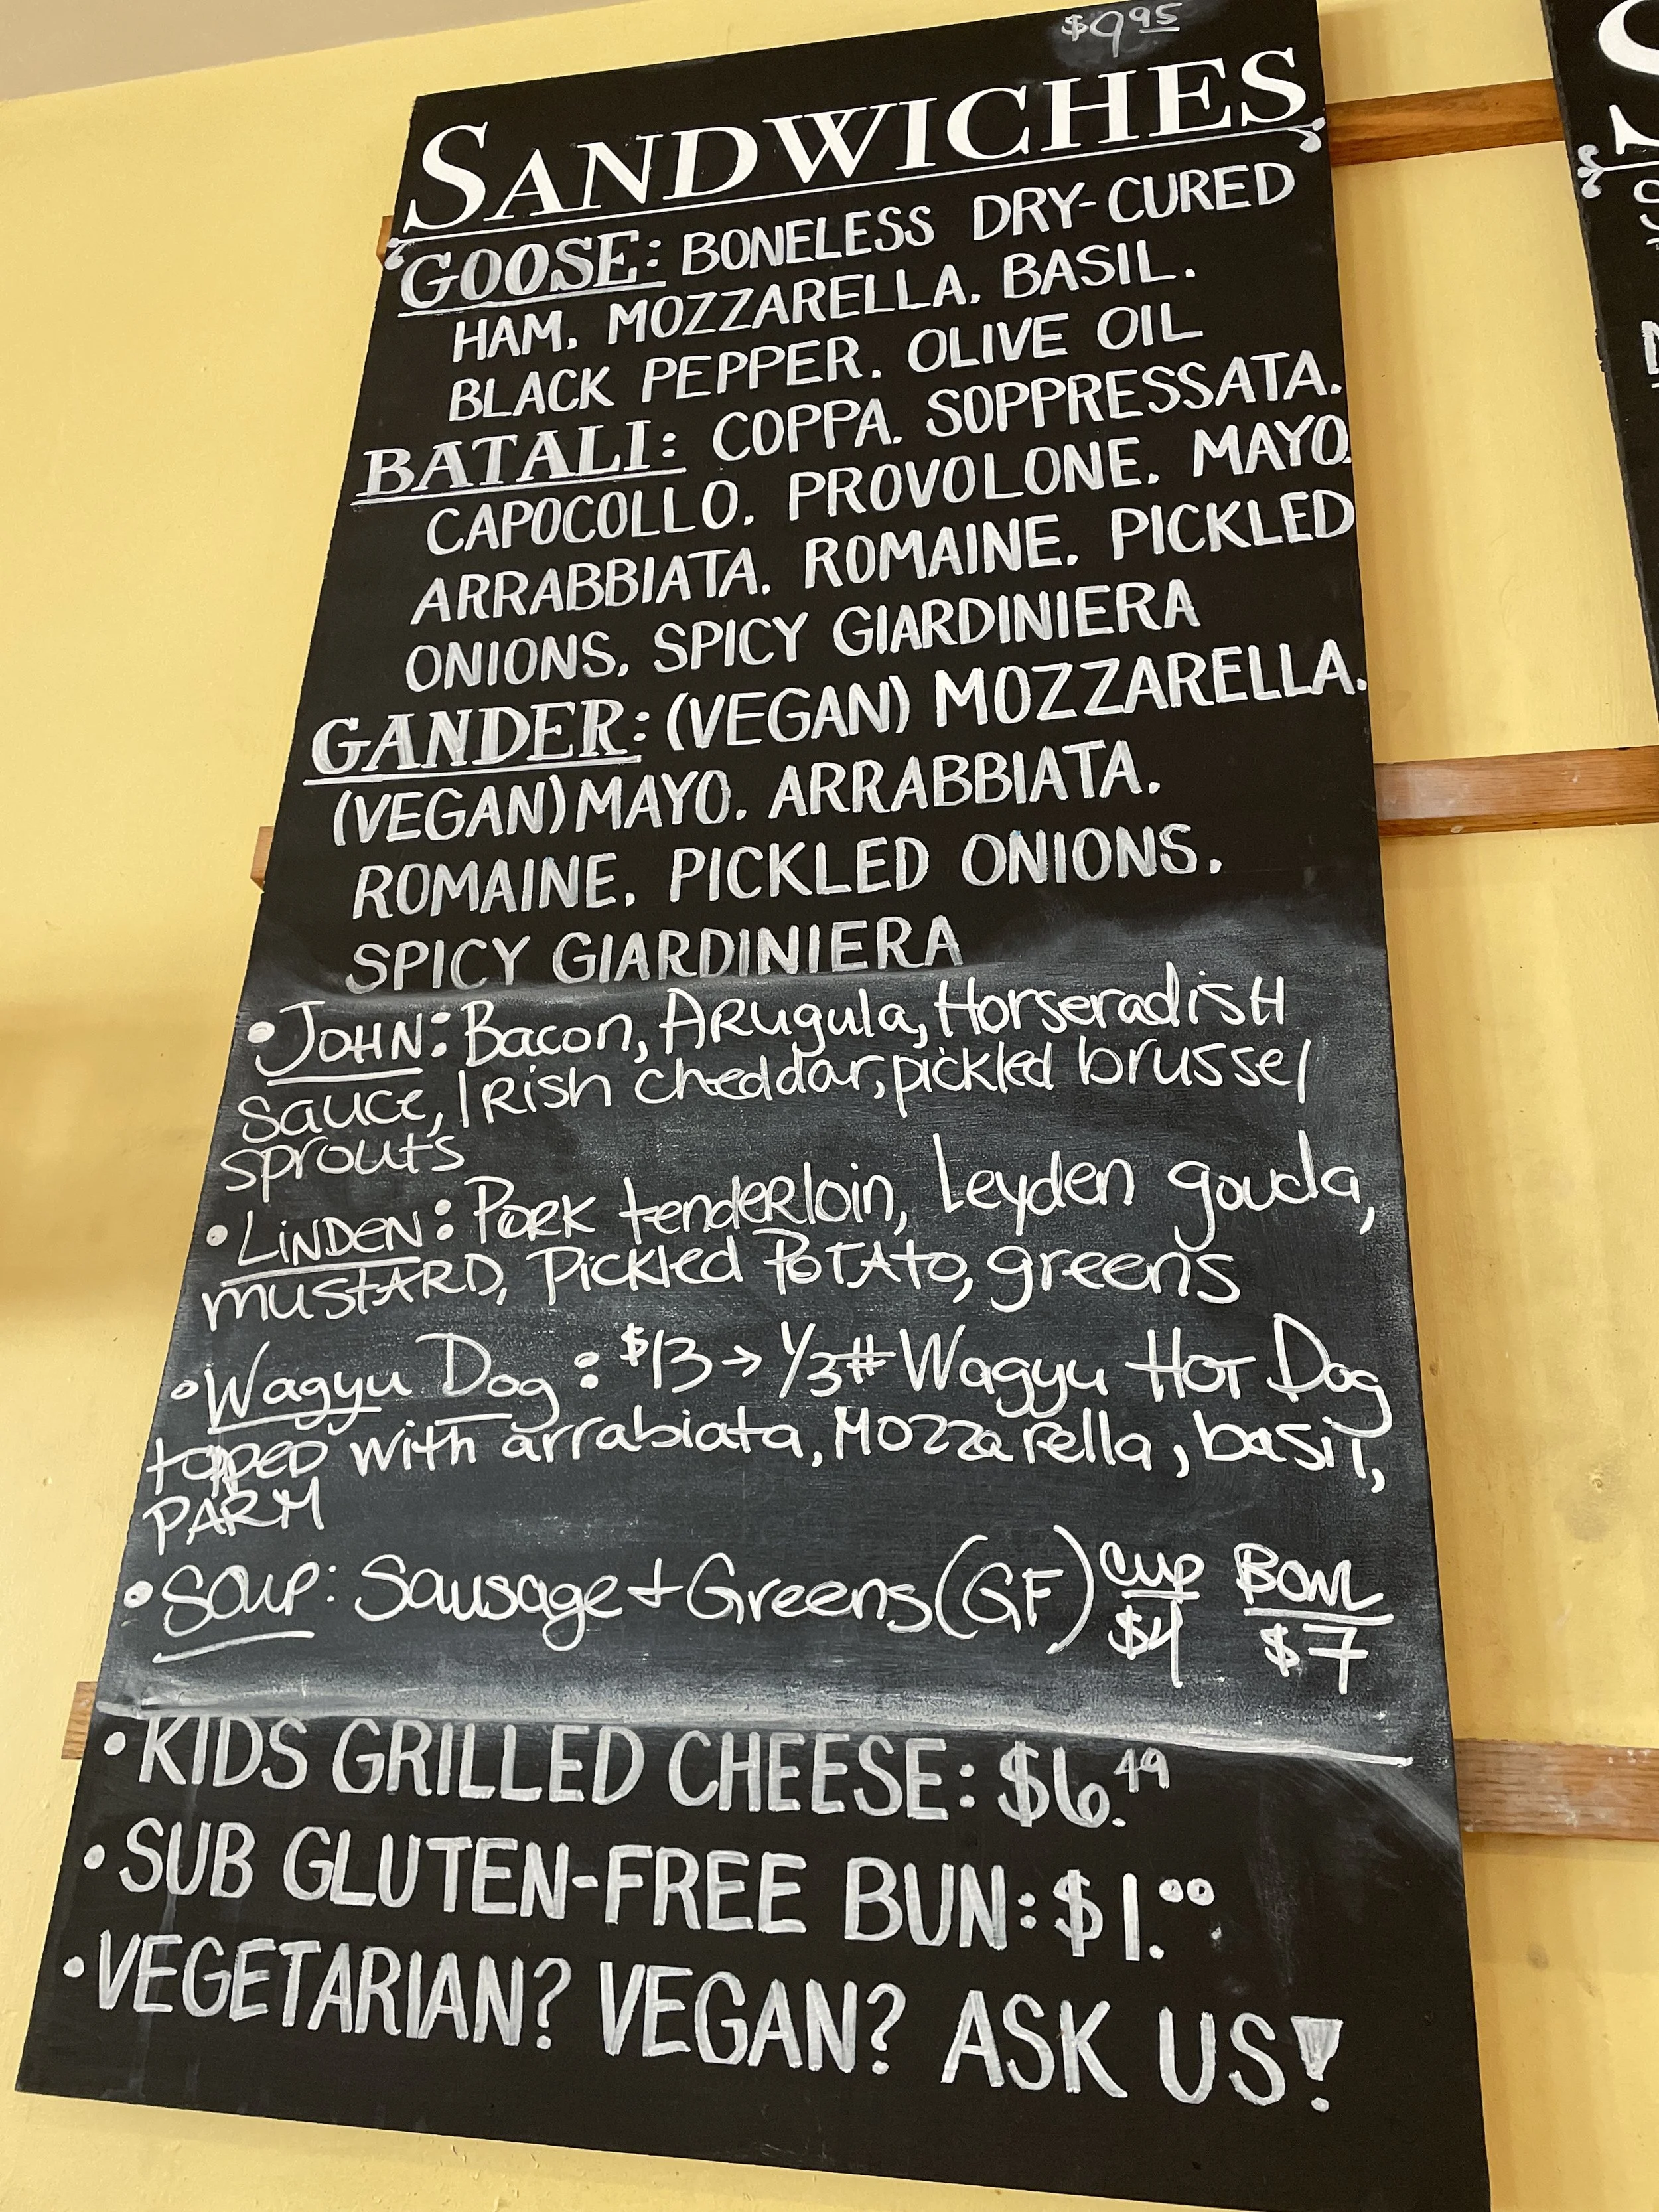 $9.95
SANDWICHES
GOOSE: BONELESS DRY-CURED
HAM. MOZZARELLA. BASIL.
BLACK PEPPER. OLIVE OIL
BATALI: COPPA. SOPPRESSATA.
CAPOCOLLO. PROVOLONE. MAYO.
ARRABBIATA. ROMAINE. PICKLED
ONIONS. SPICY GIARDINIERA
GANDER: (VEGAN) MOZZARELLA.
(VEGAN) MAYO. ARRABBIATA.
ROMAINE. PICKLED ONIONS.
SPICY GIARDINIERA
• JOHN: Bacon, ARugula, HorseradisH
sauce, IRish cheddar, pickled brussel
sprouts
• LiNDEN: PORK tenderloin, Leyden gouda,
mustARD, Pickled PoTAto, greens
• Wagyu Dog: $13 → 1/3# Wagyu HOT Dog
topped with arrabiata, Mozzarella, basil,
PARM
• SOUP: Sausage + Greens (GF) CUP $4 BOWL $7
• KIDS GRILLED CHEESE: $6.49
• SUB GLUTEN-FREE BUN: $1.00
• VEGETARIAN? VEGAN? ASK US!